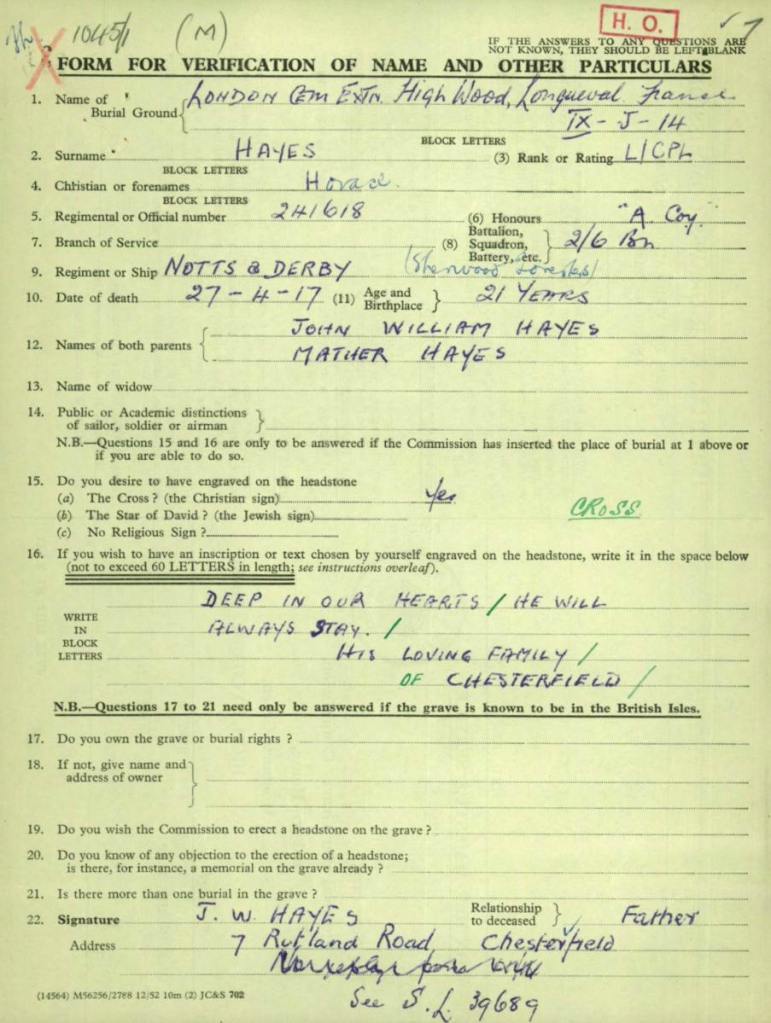 1045/1 (M) H. O. 7
IF THE ANSWERS TO ANY QUESTIONS ARE
NOT KNOWN, THEY SHOULD BE LEFT BLANK
FORM FOR VERIFICATION OF NAME AND OTHER PARTICULARS
1. Name of Burial Ground LONDON CEM EXTN. HIGH WOOD, Longueval France
IX - J - 14
2. Surname HAYES (3) Rank or Rating L/CPL
BLOCK LETTERS BLOCK LETTERS
4. Christian or forenames Horace
BLOCK LETTERS
5. Regimental or Official number 241618 (6) Honours "A Coy."
7. Branch of Service (8) Battalion, Squadron, Battery, etc. 2/6 Bn
9. Regiment or Ship NOTTS & DERBY (Sherwood Foresters)
10. Date of death 27 - 4 - 17 (11) Age and Birthplace 21 YEARS
12. Names of both parents JOHN WILLIAM HAYES
MATHER HAYES
13. Name of widow
14. Public or Academic distinctions
of sailor, soldier or airman
N.B.—Questions 15 and 16 are only to be answered if the Commission has inserted the place of burial at 1 above or
if you are able to do so.
15. Do you desire to have engraved on the headstone
(a) The Cross? (the Christian sign) Yes
(b) The Star of David? (the Jewish sign) CROSS
(c) No Religious Sign?
16. If you wish to have an inscription or text chosen by yourself engraved on the headstone, write it in the space below
(not to exceed 60 LETTERS in length; see instructions overleaf).
DEEP IN OUR HEARTS / HE WILL
WRITE IN BLOCK LETTERS ALWAYS STAY. /
HIS LOVING FAMILY /
OF CHESTERFIELD /
N.B.—Questions 17 to 21 need only be answered if the grave is known to be in the British Isles.
17. Do you own the grave or burial rights ?
18. If not, give name and
address of owner
19. Do you wish the Commission to erect a headstone on the grave ?
20. Do you know of any objection to the erection of a headstone;
is there, for instance, a memorial on the grave already ?
21. Is there more than one burial in the grave ?
22. Signature J. W. HAYES Relationship to deceased Father
Address 7 Rutland Road Chesterfield
See S.L. 39689
(14564) M56256/2788 12/52 10m (2) JC&S 702